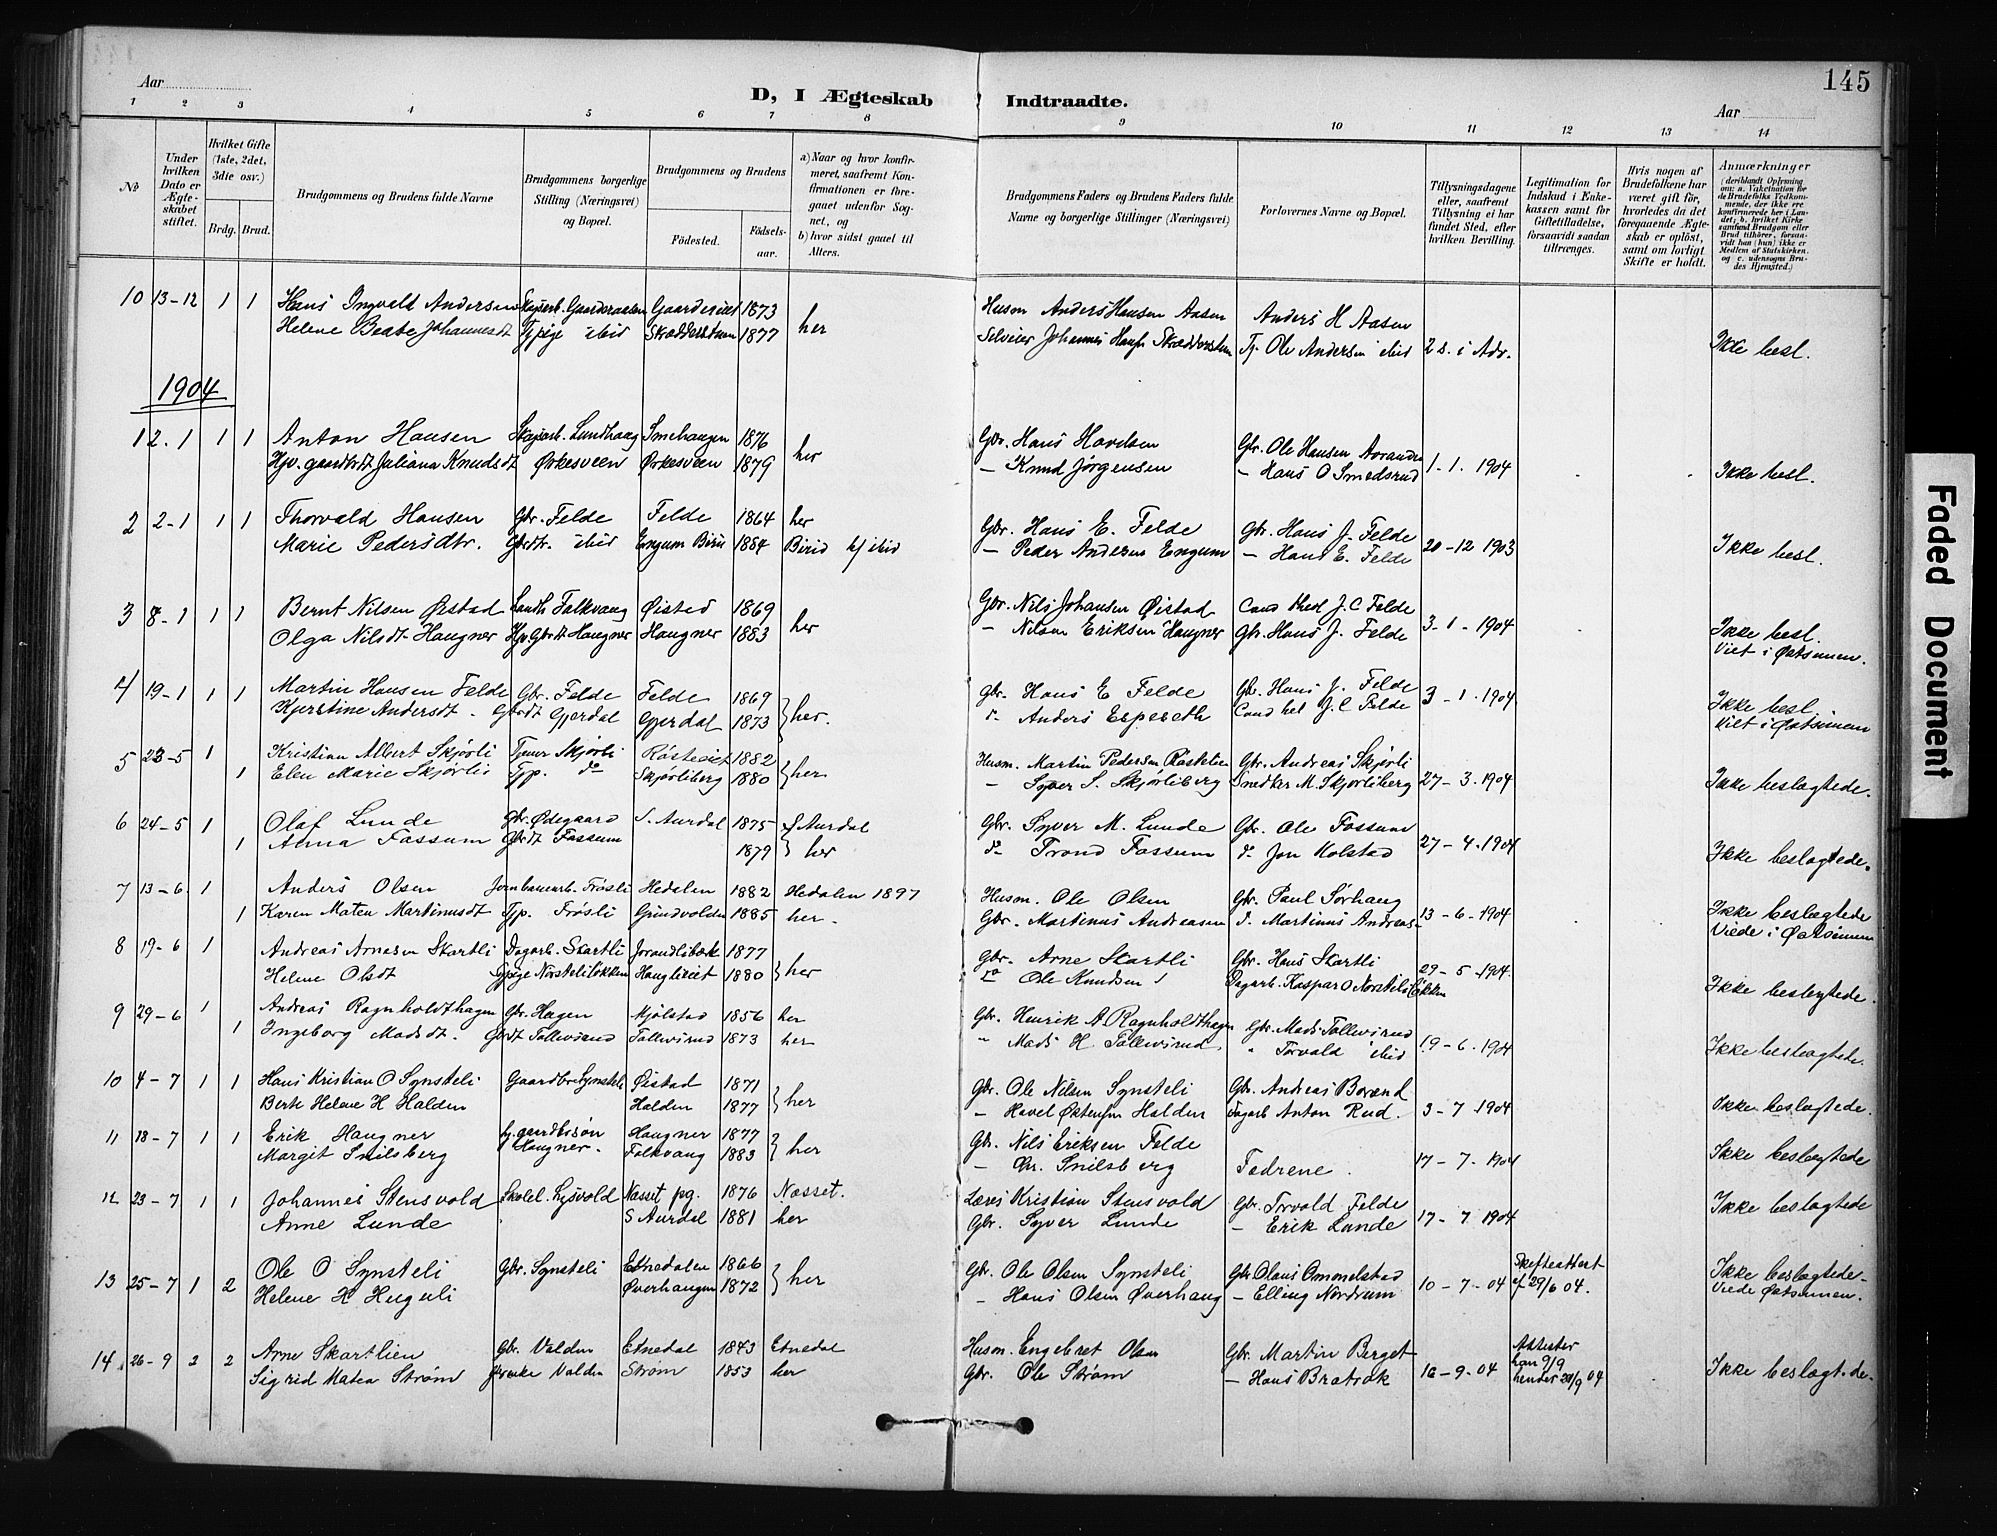 145
Aar
D, I Ægteskab Indtraadte.
Aar
1 2 3 4 5 6 7 8 9 10 11 12 13 14
No
Under hvilken Dato er Ægteskabet stiftet.
Hvilket Gifte (1ste, 2det, 3die osv.)
Brdg. Brud.
Brudgommens og Brudens fulde Navne
Brudgommens borgerlige Stilling (Næringsvei) og Bopæl.
Brudgommens og Brudens
Födested.
Födselsaar.
a) Naar og hvor konfirmeret, saafremt Konfirmationen er foregaaet udenfor Sognet, og
b) hvor sidst gaaet til Alters.
Brudgommens Faders og Brudens Faders fulde Navne og borgerlige Stillinger (Næringsvei)
Forlovernes Navne og Bopæl.
Tillysningsdagene eller, saafremt Tillysning ei har fundet Sted, efter hvilken Bevilling.
Legitimation for Indskud i Enkekassen samt for Giftetilladelse, forsaavidt saadan tiltrænges.
Hvis nogen af Brudefolkene har været gift för, hvorledes da det foregaaende Ægteskab er oplöst, samt om lovligt Skifte er holdt.
Anmærkninger
(deriblandt Oplysning om: a. Vakcination for de Brudefolks Vedkommende, der ikke ere konfirmerede her i Landet; b. hvilket Kirkesamfund Brudgom eller Brud tilhörer, forsaavidt han (hun) ikke er Medlem af Statskirken, og c. udensogns Brudes Hjemsted.)
10 13-12 1 1 Hans Ingvald Andersen Gaarderviet 1873 Husm Anders Hansen Aasen Anders H Aasen
Helene Beate Johannesdt Tjpige ibid 1877 her Selveier Johannes Tj. Ole Andersen ibid 2 s. i Adv. Ikke besl.
1904
1 2.1 1 1 Anton Hansen Lundhaug Smehaugen 1876 her Gbr. Hans Havelsen Gbr. Ole Hansen
Hjv. gaardbrdt Juliana Knudsdt Ørkesveen Ørkesveen 1879 – Knud Jørgensen – Hans O Smedsrud 1-1. 1904 Ikke besl.
2 2-1 1 1 Thorvald Hansen Gbr. Felde Felde 1864 her Gbr. Hans E. Felde Gbr. Hans J. Felde
Marie Pedersdtr. Gbrdtr. ibid Engum Birid 1884 Birid ibid – Peder Andersen Engum – Hans E. Felde 20-12 1903 Ikke besl.
3 8-1 1 1 Bernt Nilsen Øistad Landh. Falkvang Øistad 1869 her Gbr. Nils Johansen Øistad Cand theol J. C Felde
Olga Nilsdt Haugner Hjv. Gbrdt Haugner Haugner 1883 – Nilsen Eriksen Haugner Gbr. Hans J. Felde 3-1-1904 Ikke besl.
Viet i Østsinnen.
4 19-1 1 1 Martin Hansen Felde Gbr. Felde Felde 1869 her. Gbr. Hans E Felde Gbr. Hans J. Felde 3-1.1904 Ikke besl
Kjerstine Andersdt. Gbrdt Gjerdal Gjerdal 1873 do Anders Espeseth J. C Felde Viet i Østsinnen
5 23-5 1 Kristian Albert Skjørli Tjener Skjørli 1882 her Husm. Martin Pedersen Gbr. Andreas Skjørli
1 Elen Marie Skjørlis Tjp. do Skjørliberg 1880 – Syver S. Skjørliberg Snedker M. Skjørliberg 27-3.1904 Ikke beslægtede.
6 24-5 1 Olaf Lunde Gbr. Ødegaard S. Aurdal 1875 S Aurdal Gbr. Syver M. Lunde Gbr. Ole Fossum
1 Anna Fossum Gbrdt Fossum 1879 her do Trond Fossum do Jon Kolstad 27-4.1904 Ikke beslægtede.
7 13-6 1 Anders Olsen Jernbanearb. Frøsli Hedalen 1882 Hedalen 1897 Husm. Ole Olsen Gbr. Paul Sørhaug
1 Karen Matea Martinusdt Tjp. Frøsli Grindvolden 1885 her. Gbr. Martinus Andreasen d. Martinus Andreas- 13-6-1904 Ikke beslægtede
Viede i Østsinnen
8 19-6 1 Andreas Arnesen Skartli Dagarb. Skartli Jorandlibæk 1877 her Gbr. Arne Skartli Gbr. Hans Skartli 29-5-1904.
Helene Olsdt Tjpige Nørsteliløkken Hauglieiet 1880 do Ole Knudsen Dagarb. Kaspar O Nørsteliløkken Ikke beslægtede.
9 29-6 1 Andreas Ragnholdthagen Gbr. Hagen Mjølstad 1856 her Gbr. Henrik A Ragnholdthagen Gbr. Mads Tollevsrud
1 Ingeborg Madsdt. Gbrdt Tollevsrud Tollevsrud 1873 her " Mads H. Tollevsrud " Torvald ibid 19-6.1904 Ikke beslægtede.
10 4-7 1 1 Hans Kristian O Synsteli Gaardbr Synsteli Øistad 1871 her Gbr. Ole Nilsen Synsteli Gbr. Andreas
Berte Helene H Halden Halden 1877 – Havel Østensen Halden Dagarb Anton Rud. 3-7.1904 Ikke beslægtede.
11 18-7 1 1 Erik Haugner gaardbrsøn Haugner 1877 her Gbr. Nils Eriksen Felde
Margit Snilsberg Haugner. Falkvang 1883 – Chr. Snilsberg Fedrene. 17-7.1904 Ikke beslægtede
12 23-7 1 1 Johannes Stensvold Skolel. Lysvold Næsset pg. 1876 Næsset. Lærer Kristian Stensvold Gbr. Torvald Felde
Anne Lunde S Aurdal 1881 her Gbr. Syver Lunde – Erik Lunde 17-7 1904 Ikke beslægtede
13 25-7 1 2 Ole O Synsteli Gbr. Synsteli Etnedalen 1866 her Gbr. Ole Olsen Synsteli Gbr. Olaus Ommelstad 10-7-04 Skifteattest af 29/6 04. Ikke beslægtede.
Helene H Huguli Øverhaugen 1872 – Hans Olsen Øverhaug – Elling Nordrum Viede Østsinnen.
14. 26-9 2 2 Arne Skartlien Gbr. Volden Etnedal 1843 Etnedal Husm. Engebret Olsen Gbr. Martin Berget
Sigrid Matea Strøm Volden Strøm 1853 her Gbr. Ole Strøm – Hans Bratrok 16-9-04 Attester han 9/9 hendes 20/9 04 Ikke beslægtede.
Faded Document